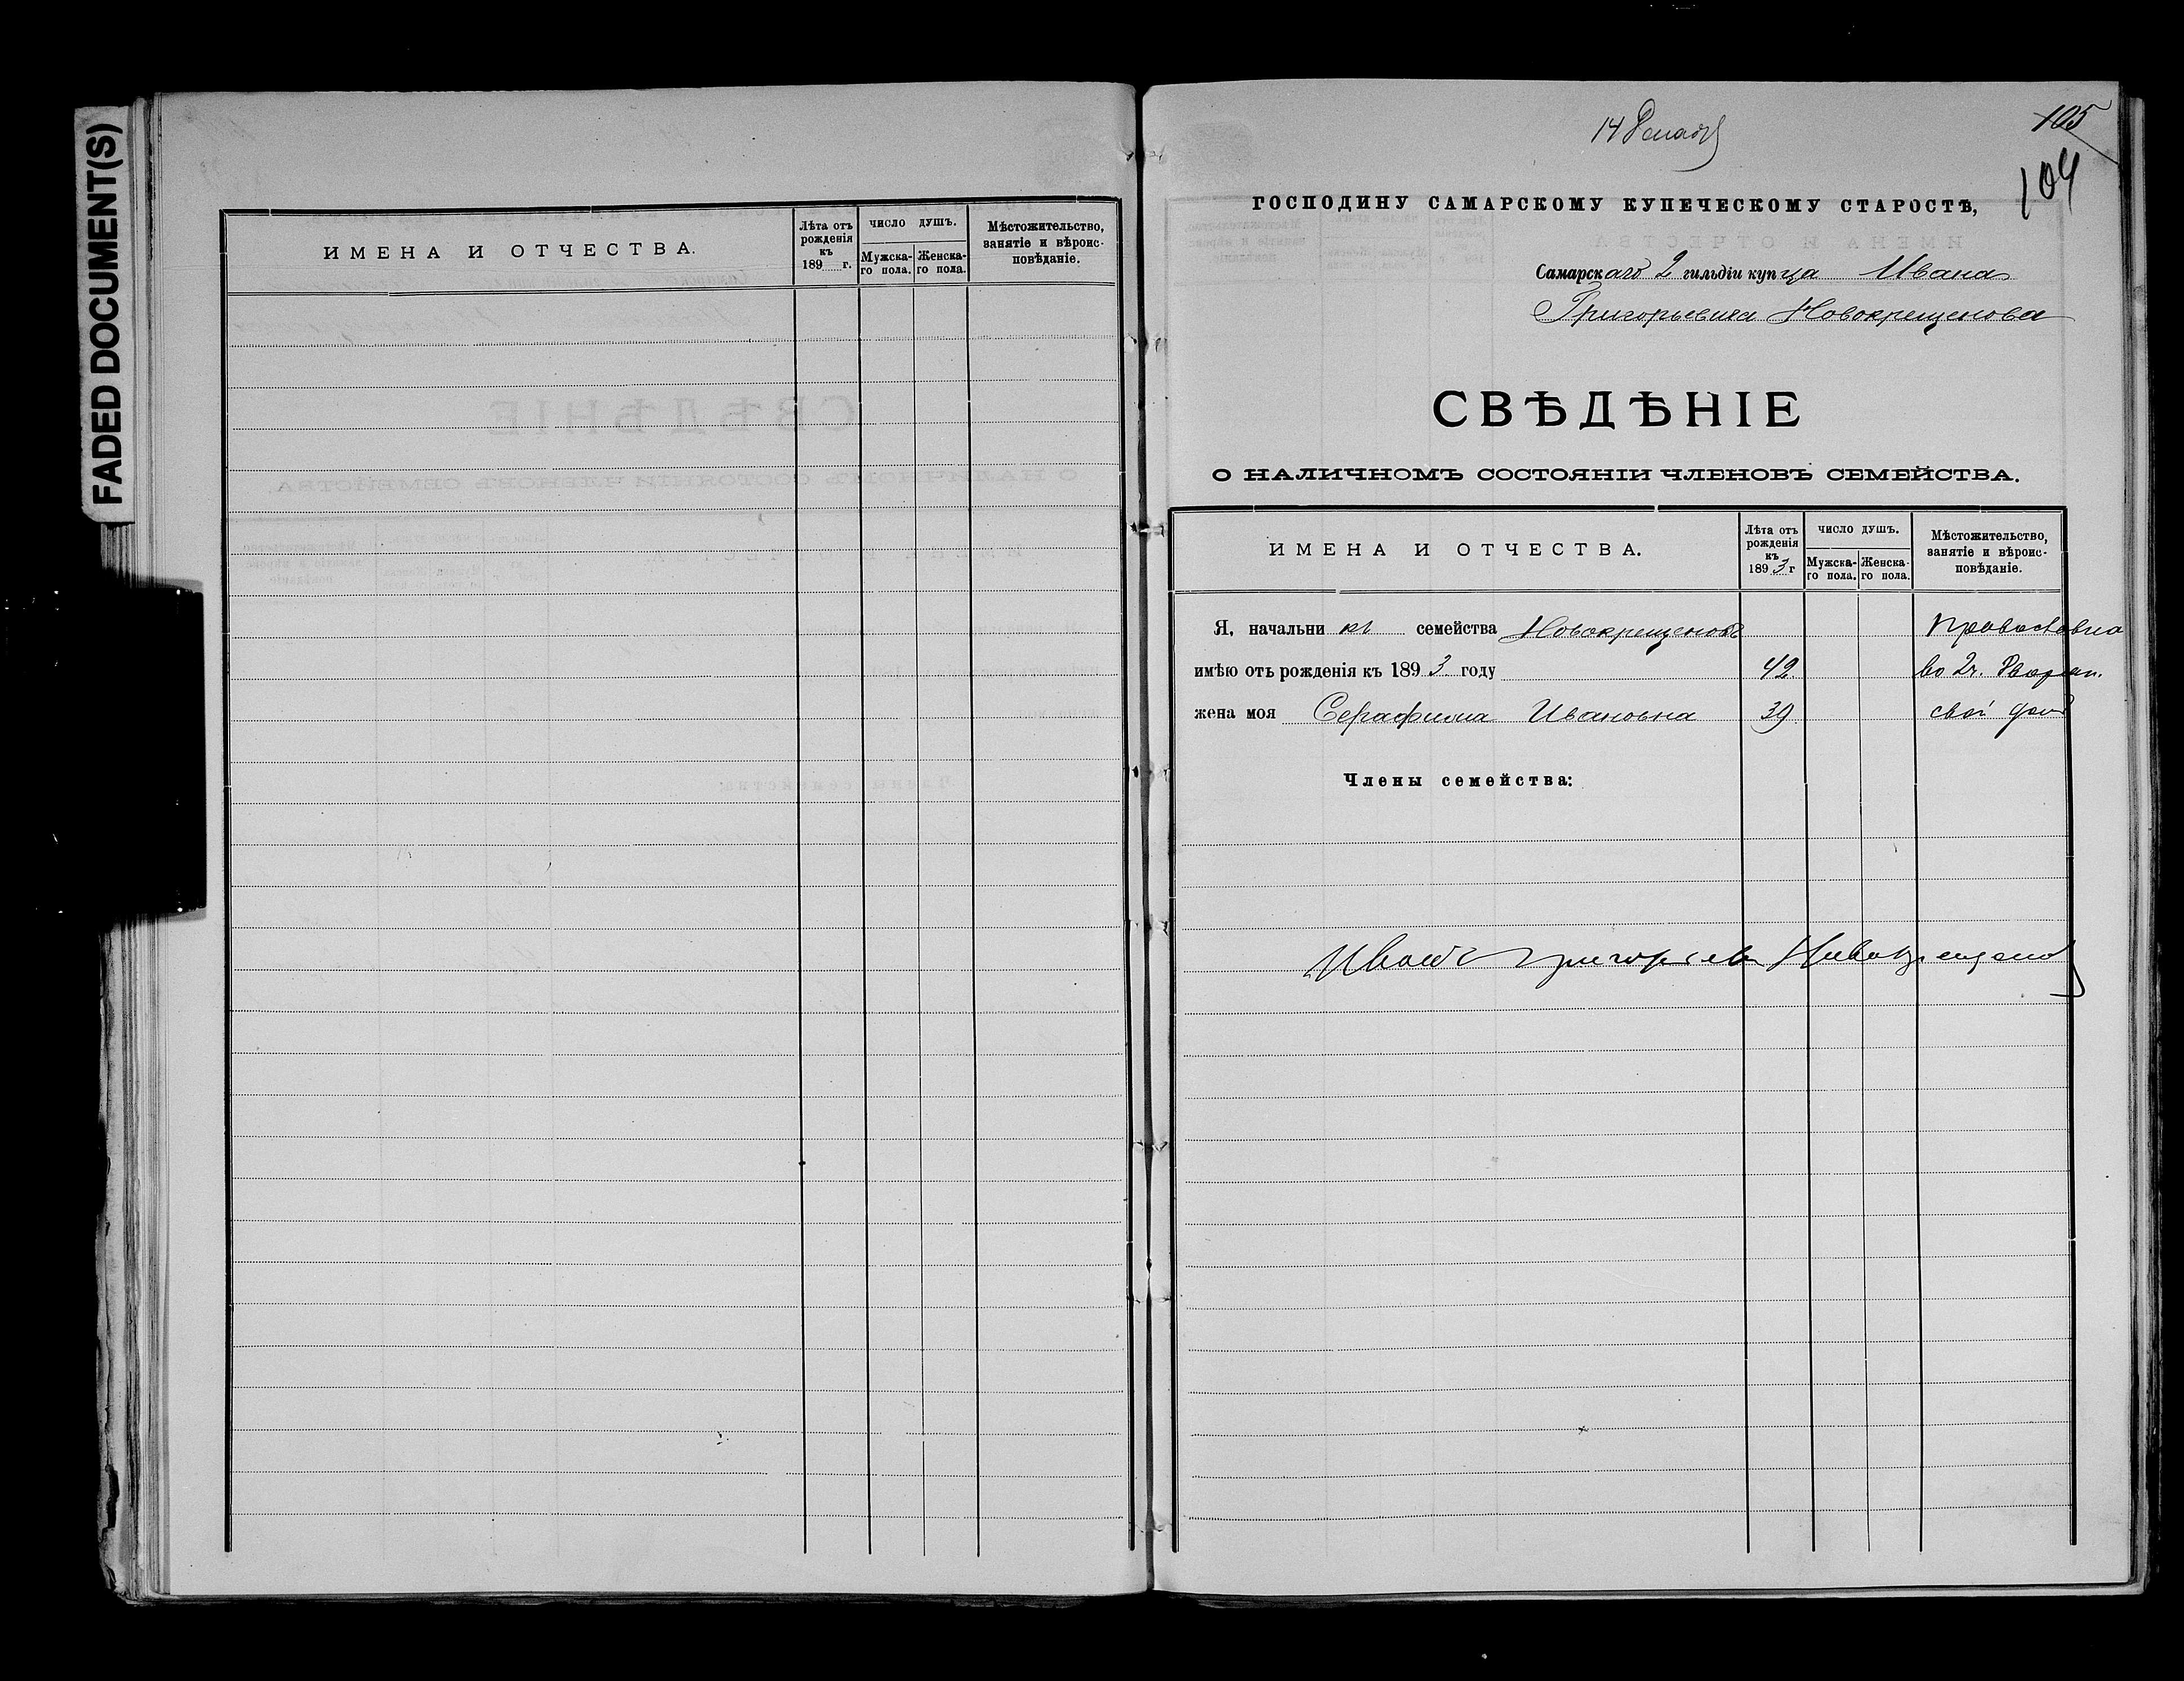 FADED DOCUMENT(S)
ИМЕНА И ОТЧЕСТВА.
Лѣта отъ
рожденія
къ
189 г.
ЧИСЛО ДУШЪ.
Мужска-
го пола.
Женска-
го пола.
Мѣстожительство,
занятіе и вѣроис-
повѣданіе.
14 Декабр
105
104
ГОСПОДИНУ САМАРСКОМУ КУПЕЧЕСКОМУ СТАРОСТѢ,
Самарскаго 2 гильдіи купца Ивана
Григорьевича Новокрещенова
СВѢДѢНІЕ
О НАЛИЧНОМЪ СОСТОЯНІИ ЧЛЕНОВЪ СЕМЕЙСТВА.
ИМЕНА И ОТЧЕСТВА.
Лѣта отъ
рожденія
къ
1893 г
ЧИСЛО ДУШЪ.
Мужска-
го пола.
Женска-
го пола.
Мѣстожительство,
занятіе и вѣроис-
повѣданіе.
Я, начальникъ семейства Новокрещеновъ Православна
имѣю отъ рожденія къ 1893 году 42 во 2ч. Дворян.
жена моя Серафима Ивановна 39 свой домъ
Члены семейства:
Иванъ Григорьевъ Новокрещеновъ